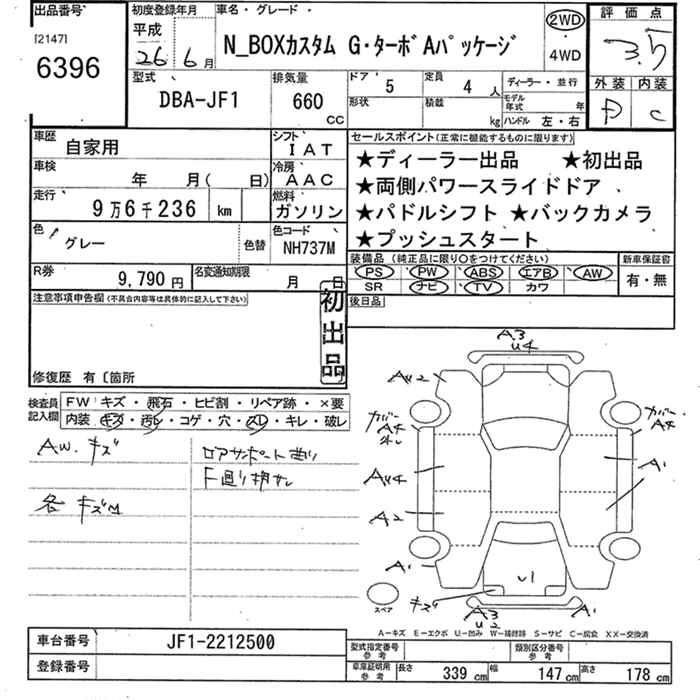 出品番号
[2147]
6396
初度登録年月
平成
26年 6月
車名・グレード
N_BOXカスタム G・ターボAパッケージ
2WD
4WD
評価点
3.5
外装 内装
D C
型式
DBA-JF1
排気量
660
CC
ドア 5
定員 4人
形状
積載 kg
ディーラー・並行
モデル年式 年
ハンドル 左・右
車歴 自家用
シフト IAT
車検 年 月( 日)
冷房 AAC
走行 9万6千236 km
燃料 ガソリン
色 グレー
色替
色コード NH737M
R券 9,790円
名変通知期限 月 日
セールスポイント(正常に機能するものに限ります)
★ディーラー出品 ★初出品
★両側パワースライドドア
★パドルシフト ★バックカメラ
★プッシュスタート
装備品(純正品に限り○をつけてください)
PS PW ABS エアB AW
SR ナビ TV カワ
新車保証書
有・無
後日品
注意事項申告欄(不具合内容等は具体的に記入して下さい)
初出品
修復歴 有〔箇所
検査員記入欄
FW キズ・飛石・ヒビ割・リペア跡・×要
内装 キズ・汚レ・コゲ・穴・スレ・キレ・破レ
AW. キズ
各 キズM
ロアサポート曲り
A3
U4
AU2
カバー
A4
カバー
A4
AU4
A1
A2
A1
U1
キズ
A3
U2
A1
スペア
A−キズ E−エクボ U−凹み W−補修跡 S−サビ C−腐食 XX−交換済
車台番号 JF1-2212500
登録番号
型式指定番号
参考
類別区分番号
参考
車庫証明用
参考
長さ 339 cm 幅 147 cm 高さ 178 cm